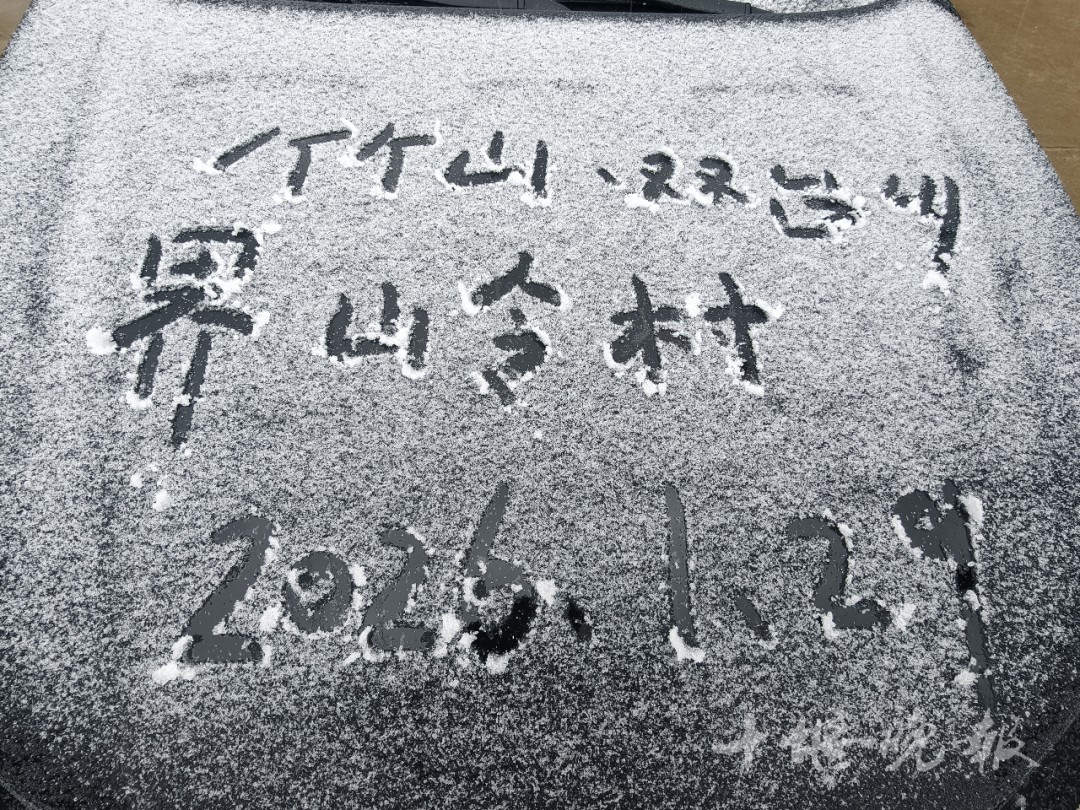 竹山·双台
界山令村
2026.1.29
十堰晚报